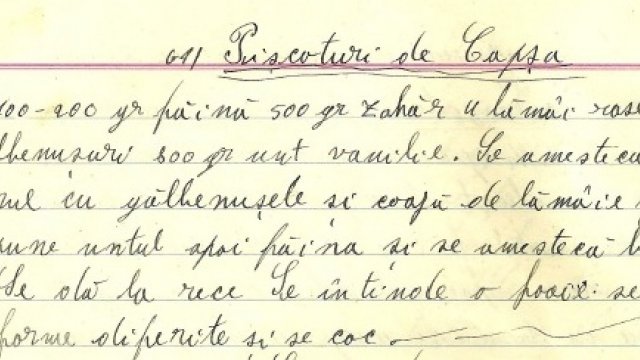 611 Pișcoturi de Capșa
100-200 gr făină 500 gr zahăr 4 lămâi rase
lbenusuri 800 gr unt vanilie. Se amesteca
cu gălbenușele si coajă de lămâie
pune untul apoi făina si se amestecă
Se dă la rece Se întinde o foaie se
forme diferite si se coc